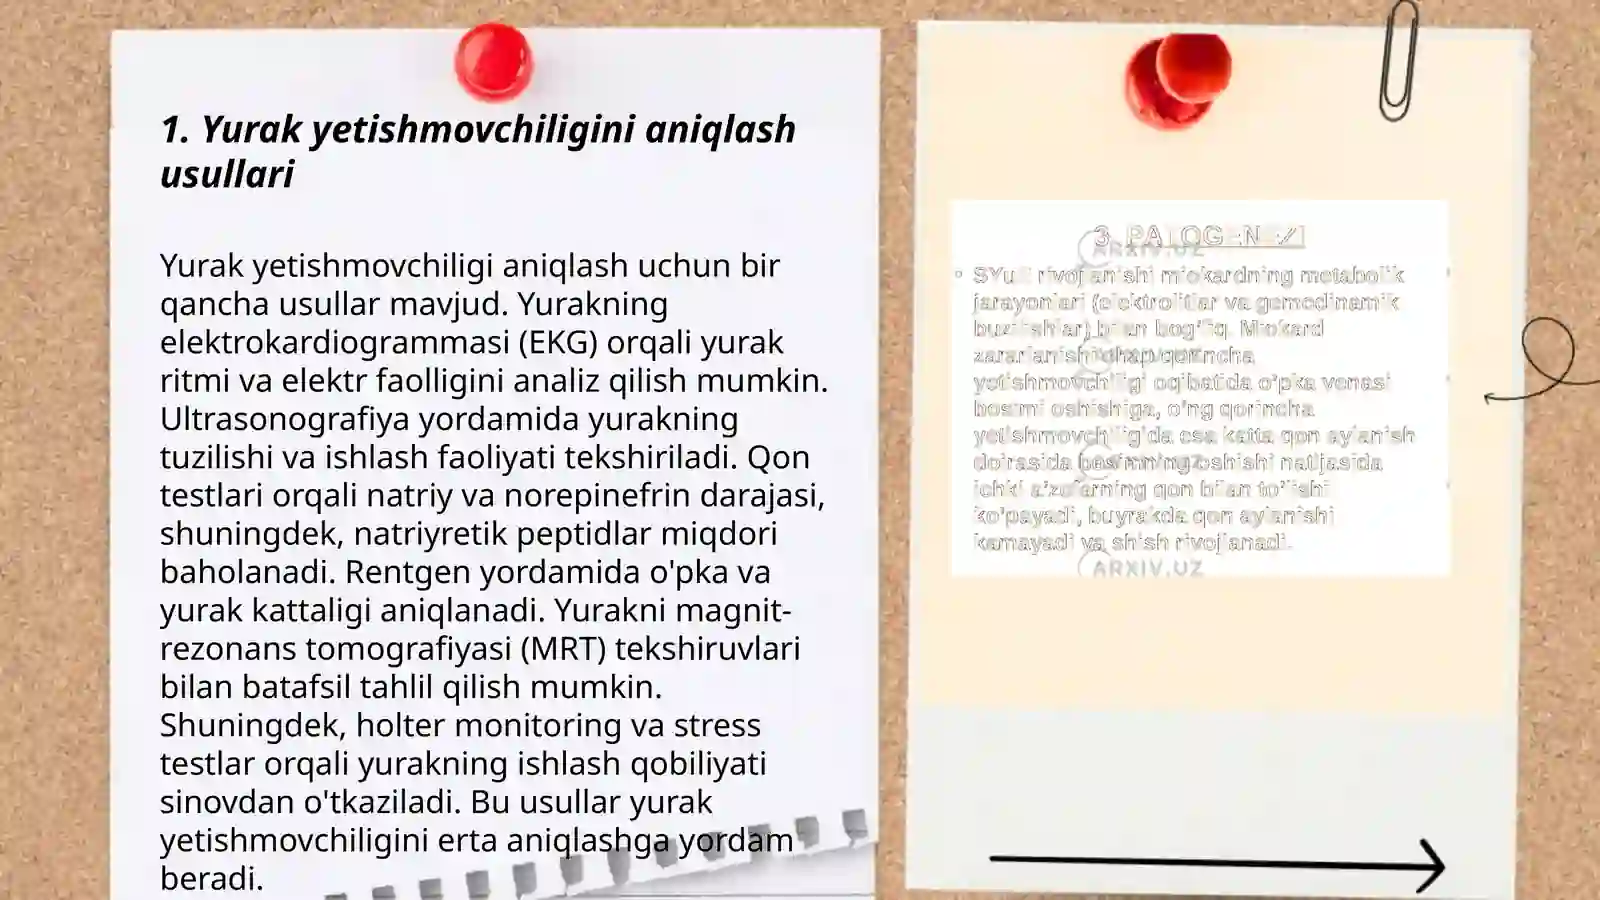 1. Yurak yetishmovchiligini aniqlash
usullari
Yurak yetishmovchiligi aniqlash uchun bir
qancha usullar mavjud. Yurakning
elektrokardiogrammasi (EKG) orqali yurak
ritmi va elektr faolligini analiz qilish mumkin.
Ultrasonografiya yordamida yurakning
tuzilishi va ishlash faoliyati tekshiriladi. Qon
testlari orqali natriy va norepinefrin darajasi,
shuningdek, natriyretik peptidlar miqdori
baholanadi. Rentgen yordamida o'pka va
yurak kattaligi aniqlanadi. Yurakni magnit-
rezonans tomografiyasi (MRT) tekshiruvlari
bilan batafsil tahlil qilish mumkin.
Shuningdek, holter monitoring va stress
testlar orqali yurakning ishlash qobiliyati
sinovdan o'tkaziladi. Bu usullar yurak
yetishmovchiligini erta aniqlashga yordam
beradi.
3. PATOGENEZI
ARXIV.UZ
• rivojlanishi miokardning metabolik
jarayonlari (elektrolitlar va gemodinamik
buzilishlar) bilan bog'liq. Miokard
zararlanishi chap qorincha
yetishmovchiligi oqibatida o'pka venasi
bosimi oshishiga, o'ng qorincha
yetishmovchiligida esa katta qon aylanish
doirasida bosimning oshishi natijasida
ichki a'zolarning qon bilan to'lishi
ko'payadi, buyrakda qon aylanishi
kamayadi va shish rivojlanadi.
ARXIV.UZ